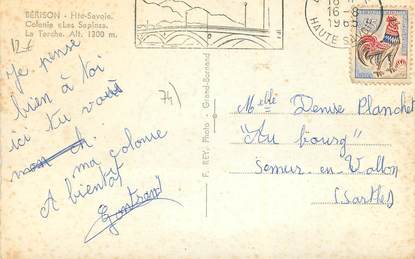 BÉRISON - Hte-Savoie.
Colonie «Les Sapins».
La Terche. Alt. 1200 m.
16-8
1965
HAUTE SAVOIE
12 €
74)
Je pense
bien à toi
ici tu vois
ma colonie
A bientôt
Gontran
F. REY, Photo - Grand-Bornand
Melle Denise Planchet
"Au bourg"
Semur-en-Vallon
(Sarthe)